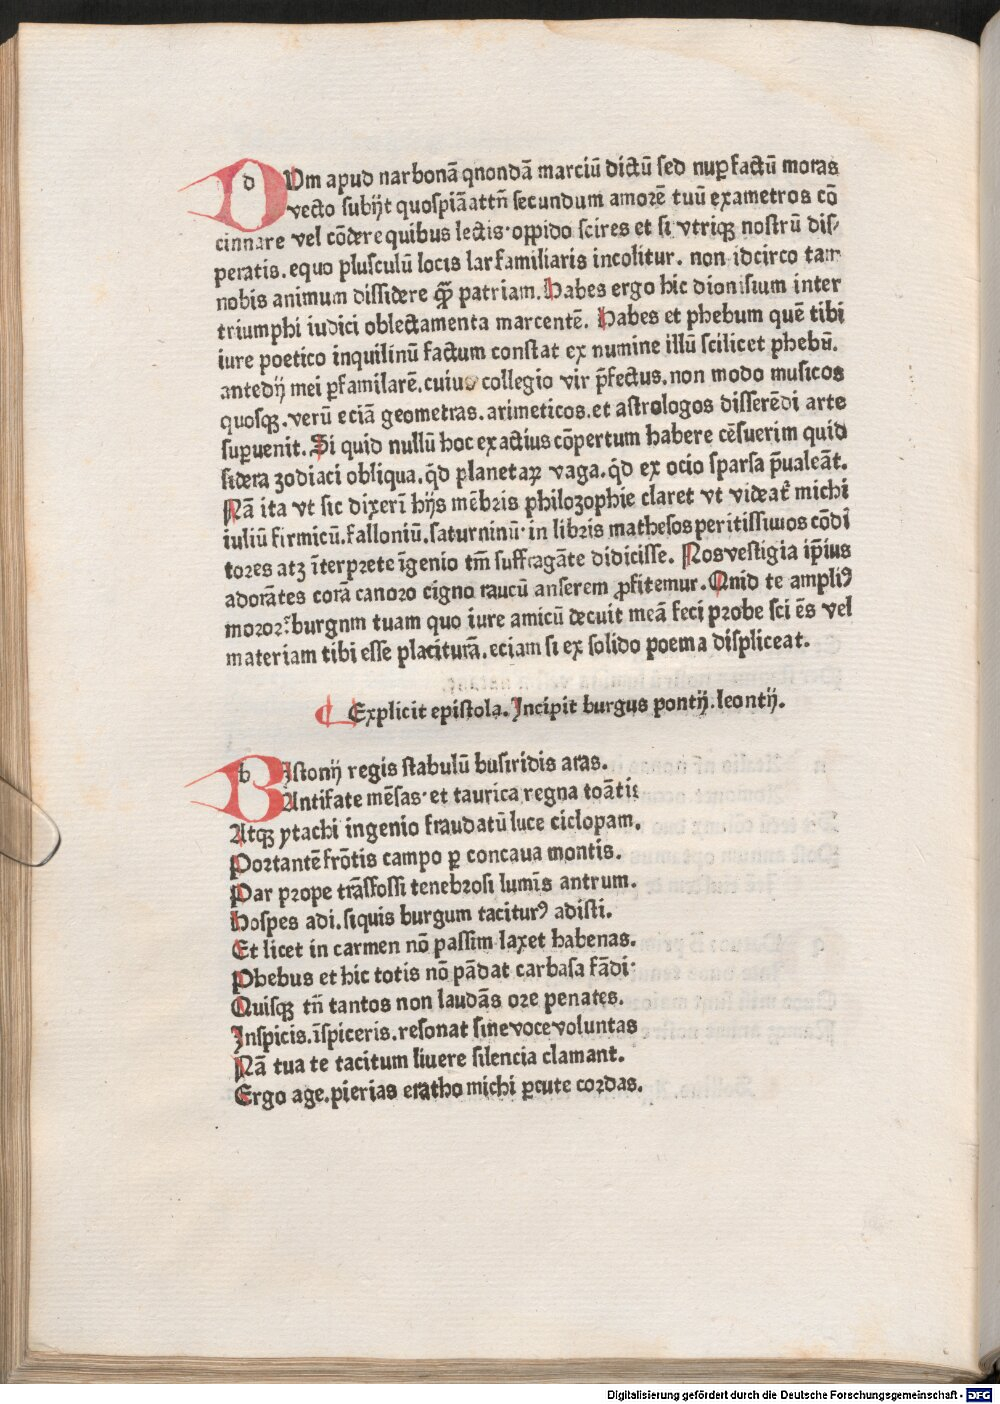 DUm apud narbonā qnondā marciū dictū sed nuꝑ factū moras
vecto subijt quospiā attn̄ secundum amorē tuū exametros cō
cinnare vel cōdere quibus lectis· oppido scires et si vtriqꝫ nostrū dis⸗
peratis. equo plusculū locis lar familiaris incolitur. non idcirco tam
nobis animum dissidere qꝫ̄ patriam. Habes ergo hic dionisium inter
triumphi iudici oblectamenta marcentē. Habes et phebum quē tibi
iure poetico inquilinū factum constat ex numine illū scilicet phebū.
antedij mei ꝑfamilarē. cuius collegio vir p̄fectus. non modo musicos
quosqꝫ. verū eciā geometras. arimeticos. et astrologos disserēdi arte
suꝑuenit. Si quid nullū hoc exactius cōpertum habere cēsuerim quid
sidera zodiaci obliqua. qd̄ planetaꝝ vaga. qd̄ ex ocio sparsa p̄ualeāt.
Nā ita vt sic dixeri᷑ hijs mēbris philozophie claret vt videat᷑ michi
iuliū firmicū. falloniū. saturninū· in libris mathesos peritissimos cōdi
tores atꝫ īterprete īgenio tm̄ suffragāte didicisse. Nos vestigia ip̄ius
adorātes corā canoro cigno raucū anserem ꝓfitemur. Qnid te ampliꝰ
moror᷑. burgnm tuam quo iure amicū decuit meā feci probe sci ēs vel
materiam tibi esse placiturā. eciam si ex solido poema displiceat.
Explicit epistola. Incipit burgus pontij. leontij.
BIstonij regis stabulū busiridis aras.
Antifate mēsas· et taurica regna toātis
Atqꝫ ytachi ingenio fraudatū luce ciclopam.
Portantē frōtis campo ꝑ concaua montis.
Par prope trāsfossi tenebrosi lumīs antrum.
Hospes adi. siquis burgum taciturꝰ adisti.
Et licet in carmen nō passim laxet habenas.
Phebus et hic totis nō pādat carbasa fādi·
Quisqꝫ tn̄ tantos non laudās ore penates.
Inspicis. īspiceris. resonat sine voce voluntas
Nā tua te tacitum liuere silencia clamant.
Ergo age. pierias eratho michi ꝑcute cordas.
Digitalisierung gefördert durch die Deutsche Forschungsgemeinschaft - DFG